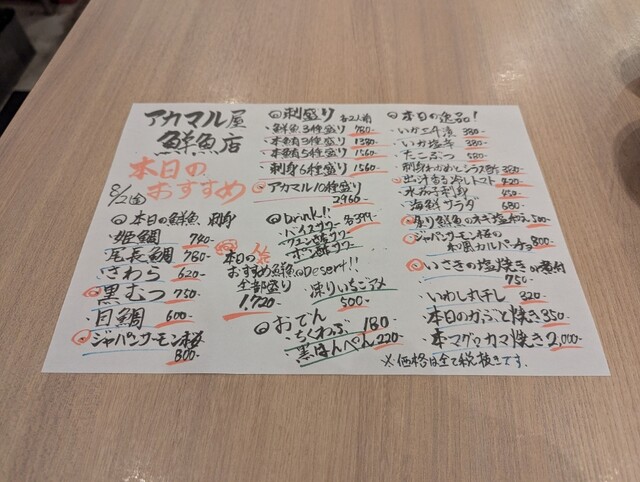 アカマル屋
鮮魚店
本日の
おすすめ
8/2(金)
◎本日の鮮魚 刺身
・姫鯛 740-
・尾長鯛 780-
・さわら 620-
・黒むつ 750-
・目鯛 600-
・ジャパンサーモン桜
800-
◎刺盛り 各2人前
・鮮魚3種盛り 780-
・本鮪3種盛り 1380-
・本鮪5種盛り 1560-
・刺身6種盛り 1560-
・アカマル10種盛り
2960-
◎Drink!! 各399-
・パイスサワー
・ポン酢サワー
本日の
おすすめ鮮魚
全部盛り
1,720-
◎Desert!!
凍りいちごアメ
500-
◎おでん
・ちくわぶ 180
・黒はんぺん 220-
◎本日の逸品!
・いか三升漬 380-
・いか塩辛 380-
・たこぶつ 580-
・刺身わかめとシラス酢
・出汁香る冷しトマト 420
・水茄子刺身 450
・海鮮サラダ 680-
・炙り鮮魚のネギ塩和え 500-
・ジャパンサーモン桜の
和風カルパッチョ 800-
・いさきの塩焼き
750-
・いわし丸干し 320-
・本日のかぶと焼き 350-
・本マグロカマ焼き 2,000-
※価格は全て税抜きです。